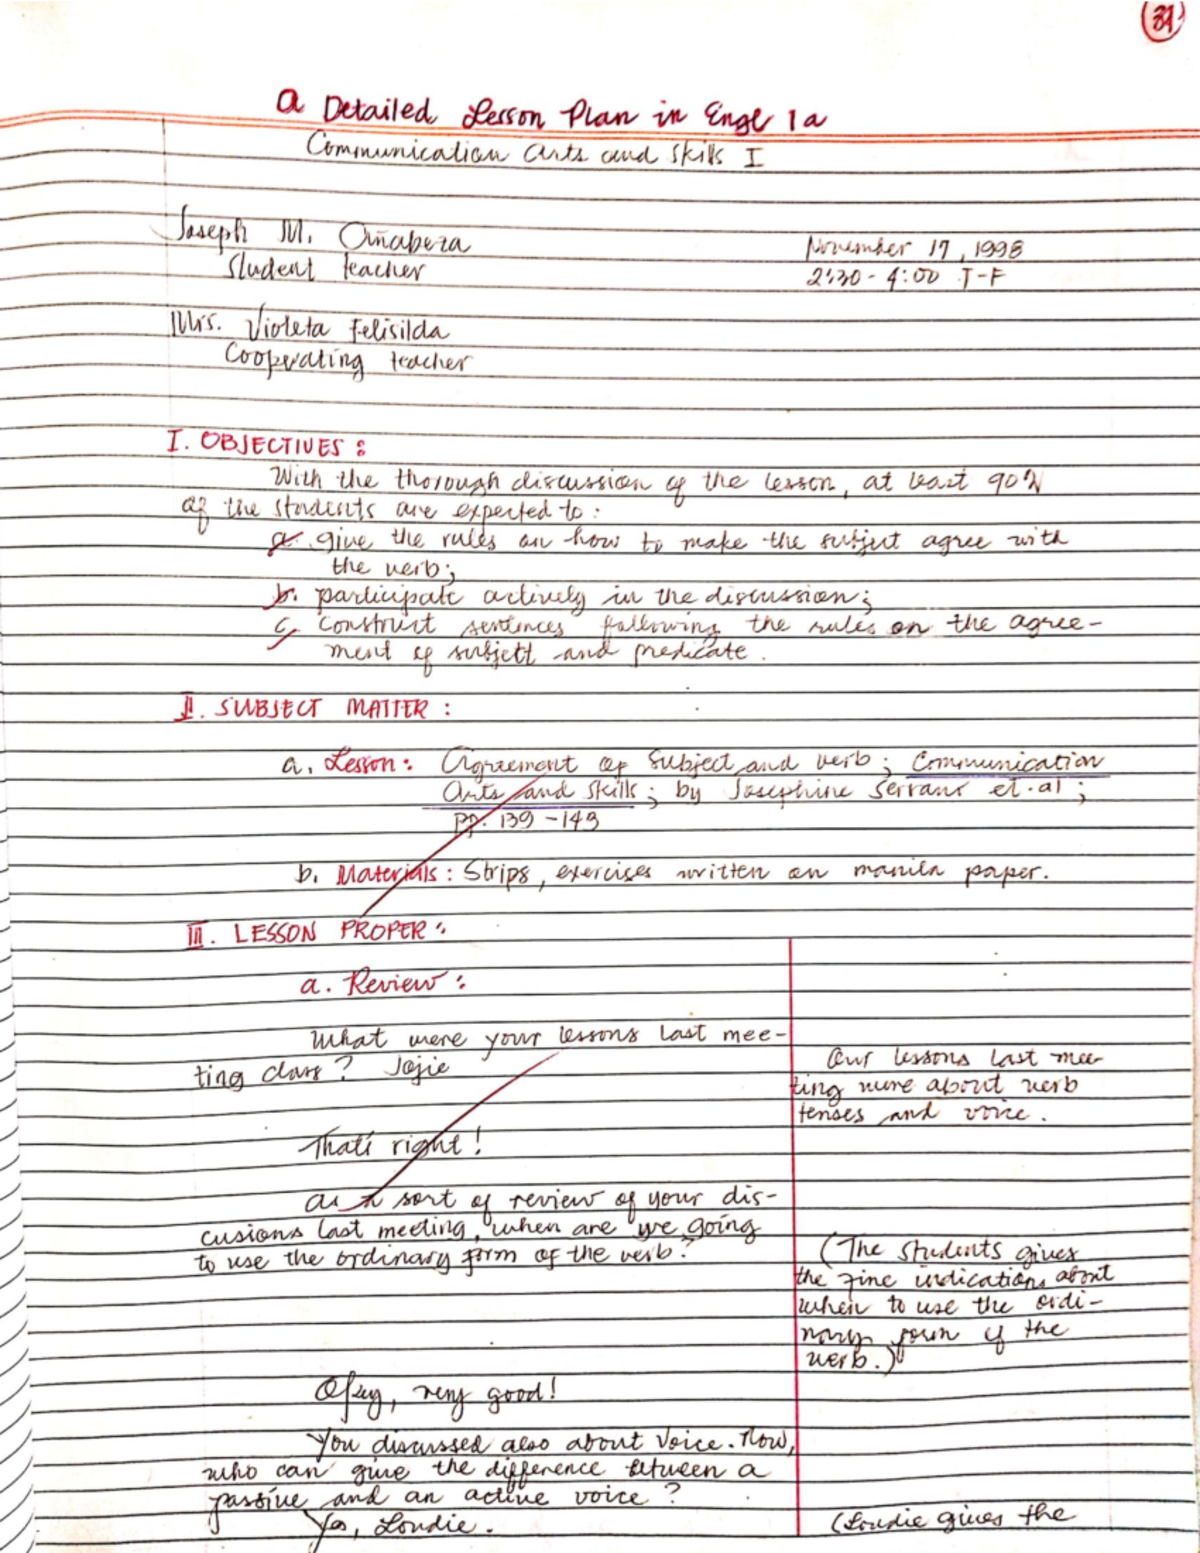 31
a Detailed Lesson Plan in Engl 1a
Communication Arts and Skills I
Joseph M. Oñabera
November 17, 1998
Student teacher
2:30 - 4:00 T-F
Mrs. Violeta Felisilda
Cooperating teacher
I. OBJECTIVES :
With the thorough discussion of the lesson, at least 90%
of the students are expected to :
a. give the rules on how to make the subject agree with
the verb;
b. participate actively in the discussion;
c. construct sentences following the rules on the agree-
ment of subject and predicate.
II. SUBJECT MATTER :
a. Lesson : Agreement of Subject and verb ; Communication
Arts and Skills ; by Josephine Serrano et.al ;
pp. 139 - 143
b. Materials : Strips, exercises written on manila paper.
III. LESSON PROPER :
a. Review :
What were your lessons last mee-
ting class ? Jojie
Our lessons last mee-
ting were about verb
tenses and voice.
That's right !
As a sort of review of your dis-
cusions last meeting, when are we going
to use the ordinary form of the verb ?
(The students gives
the indications about
when to use the ordi-
nary form of the
verb.)
Okey, very good !
You discussed also about voice. Now,
who can give the difference between a
passive and an active voice ?
Yes, Loudie.
(Loudie gives the